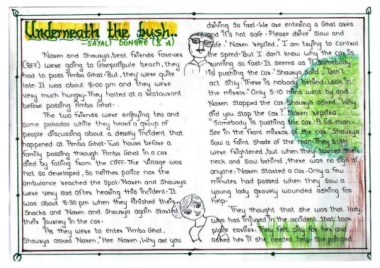 Underneath the bush..
- SAYALI DONGRE (8 A)
Naxen and Shauxya, best friends forever
(BFF) were going to Ganpatipule beach, they
had to pass Pimba Ghat. But, they were quite
late. It was about 8:00 pm and they were
very much hungry. They halted at a restaurant
before passing Pimba Ghat.
The two friends were enjoying tea and
some pakodas while they heard a group of
people discussing about a deadly incident that
happened at Pimba Ghat. Two hours before a
family passing through Pimba Ghat in a car
died by falling from the cliff. The village was
not so developed, so neither police nor the
ambulance reached the spot. Naxen and Shauxya
were very sad after hearing the incident. It
was about 8:30 pm when they finished their
snacks and Naxen and Shauxya again started
their journey in the car.
As they were to enter Pimba Ghat,
Shauxya asked Naxen, "Hee Naxen, why are you
driving so fast. We are entering a Ghat area
and it's not safe. Please drive slow and
safe." Naxen replied, "I am trying to control
the speed. But I don't know why the car is
running so fast. It seems as if somebody
is pushing the car." Shauxya said, "Don't
act silly. There is nobody behind. Look in
the mirror." Only 5-10 minutes went by and
Naxen stopped the car. Shauxya asked, "Why
did you stop the car?" Naxen replied,
"Somebody is pushing the car, Trust me...
See in the front mirror of the car." Shauxya
saw a faint shade of the man. They both
were frightened, but when they turned their
neck and saw behind, there was no sign of
anyone. Naxen started a car. Only a few
minutes had passed when they saw a
young lady gravely wounded asking for
help.
They thought that she was that lady
who has injured in the accident that took
place earlier. They felt pity for her and
asked her if she needed help. She pointed